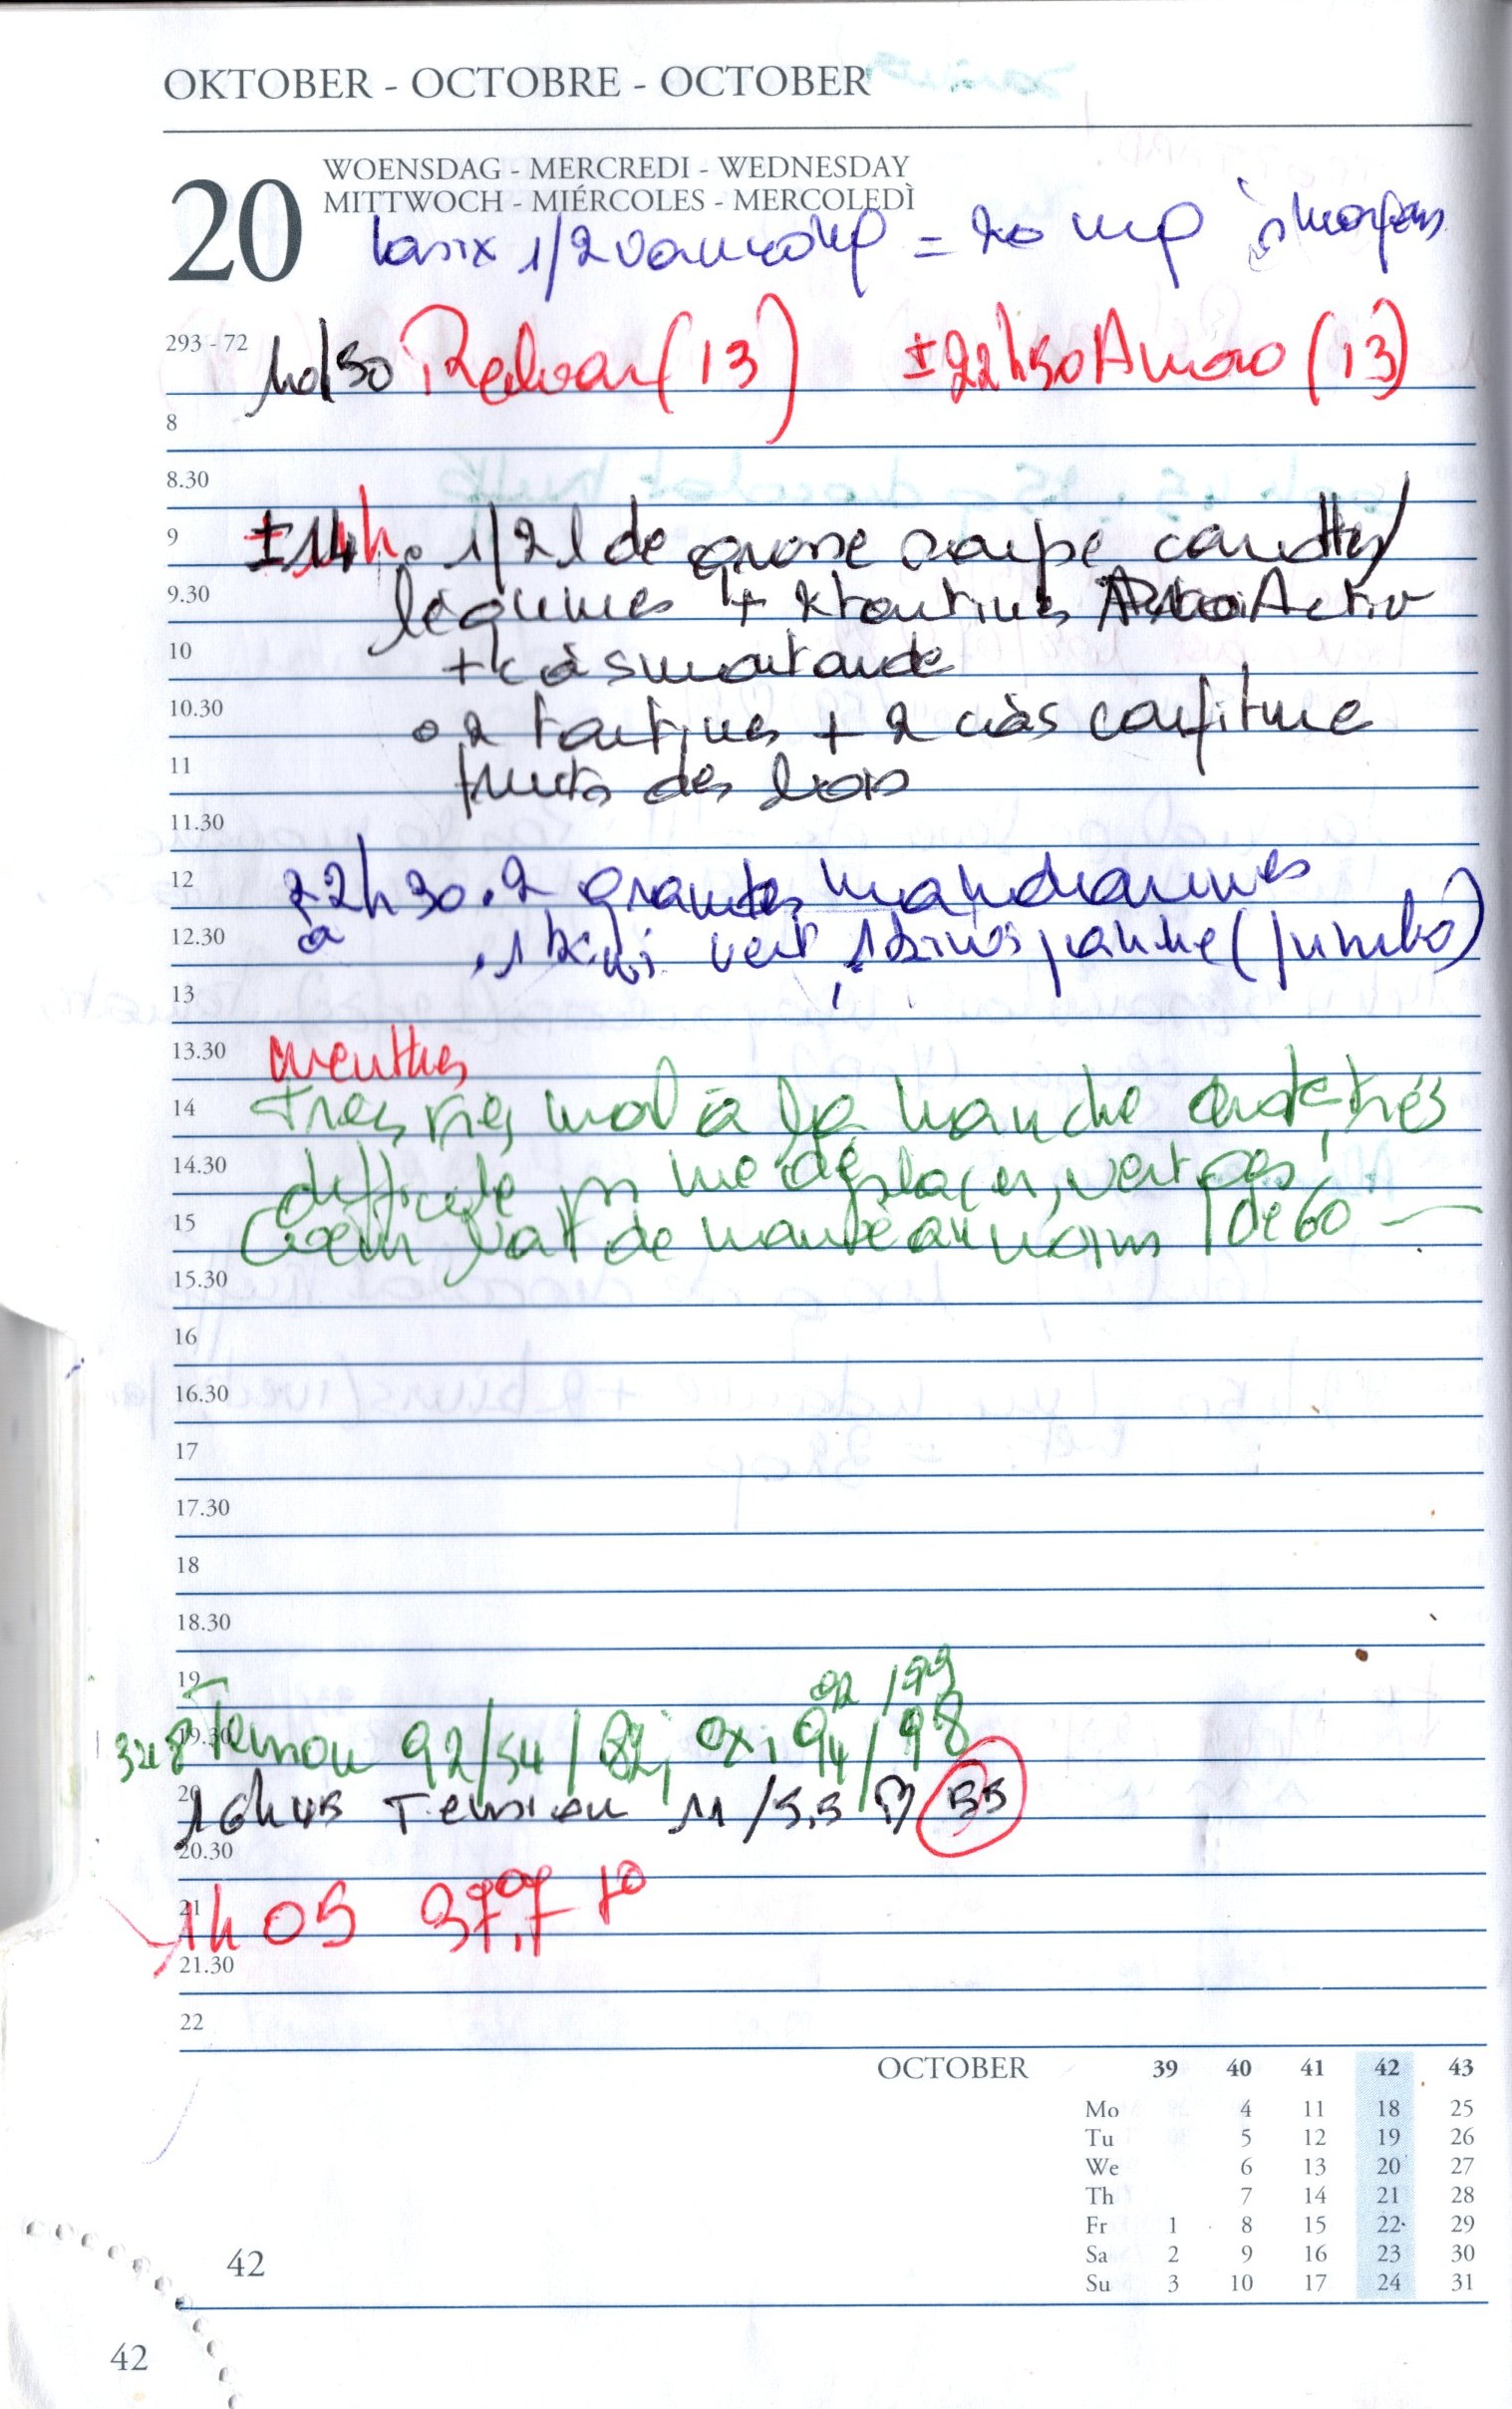 OKTOBER - OCTOBRE - OCTOBER
20
WOENSDAG - MERCREDI - WEDNESDAY
MITTWOCH - MIÉRCOLES - MERCOLEDÌ
lasix 1/2 = 20 mg
293 - 72
Relvar (13) ±22h50 Amoro (13)
8
8.30
9
±14h. 1/2 l de grosse soupe carottes/
9.30
légumes + 2 tartines ProActiv
10
+ c à s moutarde
10.30
o 2 tartines + 2 càs confiture
11
fruits des bois
11.30
12
22h30. 2 grandes mandarines
12.30
à , 1 kiwi vert, 1 kiwis jaune (jumbo)
13
13.30
menthes
14
Très très mal à la hanche droite, très
14.30
difficile me déplacer, vertiges!
15
Coeur bat de manière au moins 1 de 60
15.30
16
16.30
17
17.30
18
18.30
19
92 / 99
19.30
Tension 92/54/82; ox. 94/98
20
16h45 Tension 11/5,5 55
20.30
21
1h05 37,7
21.30
22
OCTOBER 39 40 41 42 43
Mo 4 11 18 25
Tu 5 12 19 26
We 6 13 20 27
Th 7 14 21 28
Fr 1 8 15 22 29
Sa 2 9 16 23 30
Su 3 10 17 24 31
42
42